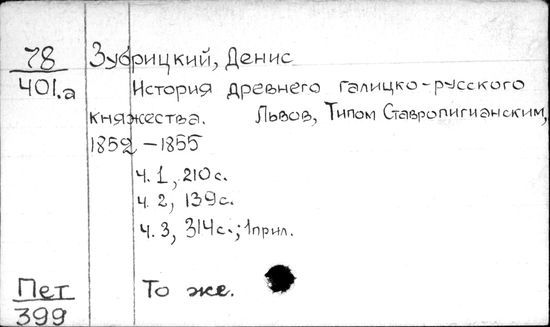 78 Зубрицкий, Денис
401.а История древнего галицко-русского
княжества. Львов, Типом Ставропигианским,
1852 – 1855
ч. 1, 210 с.
ч. 2, 139 с.
ч. 3, 314 с.; 1 прил.
Пет То же.
399